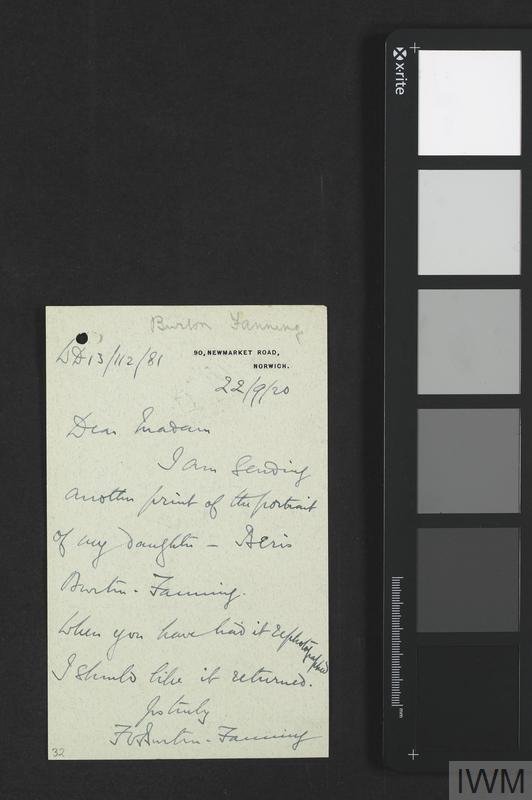 Burton Fanning
90, NEWMARKET ROAD,
NORWICH.
22/9/20
Dear Madam
I am sending
another print of the portrait
of my daughter –
Burton-Fanning.
When you have had it rephotographed
I should like it returned.
Yrs truly
Burton-Fanning
32
x-rite
mm
IWM